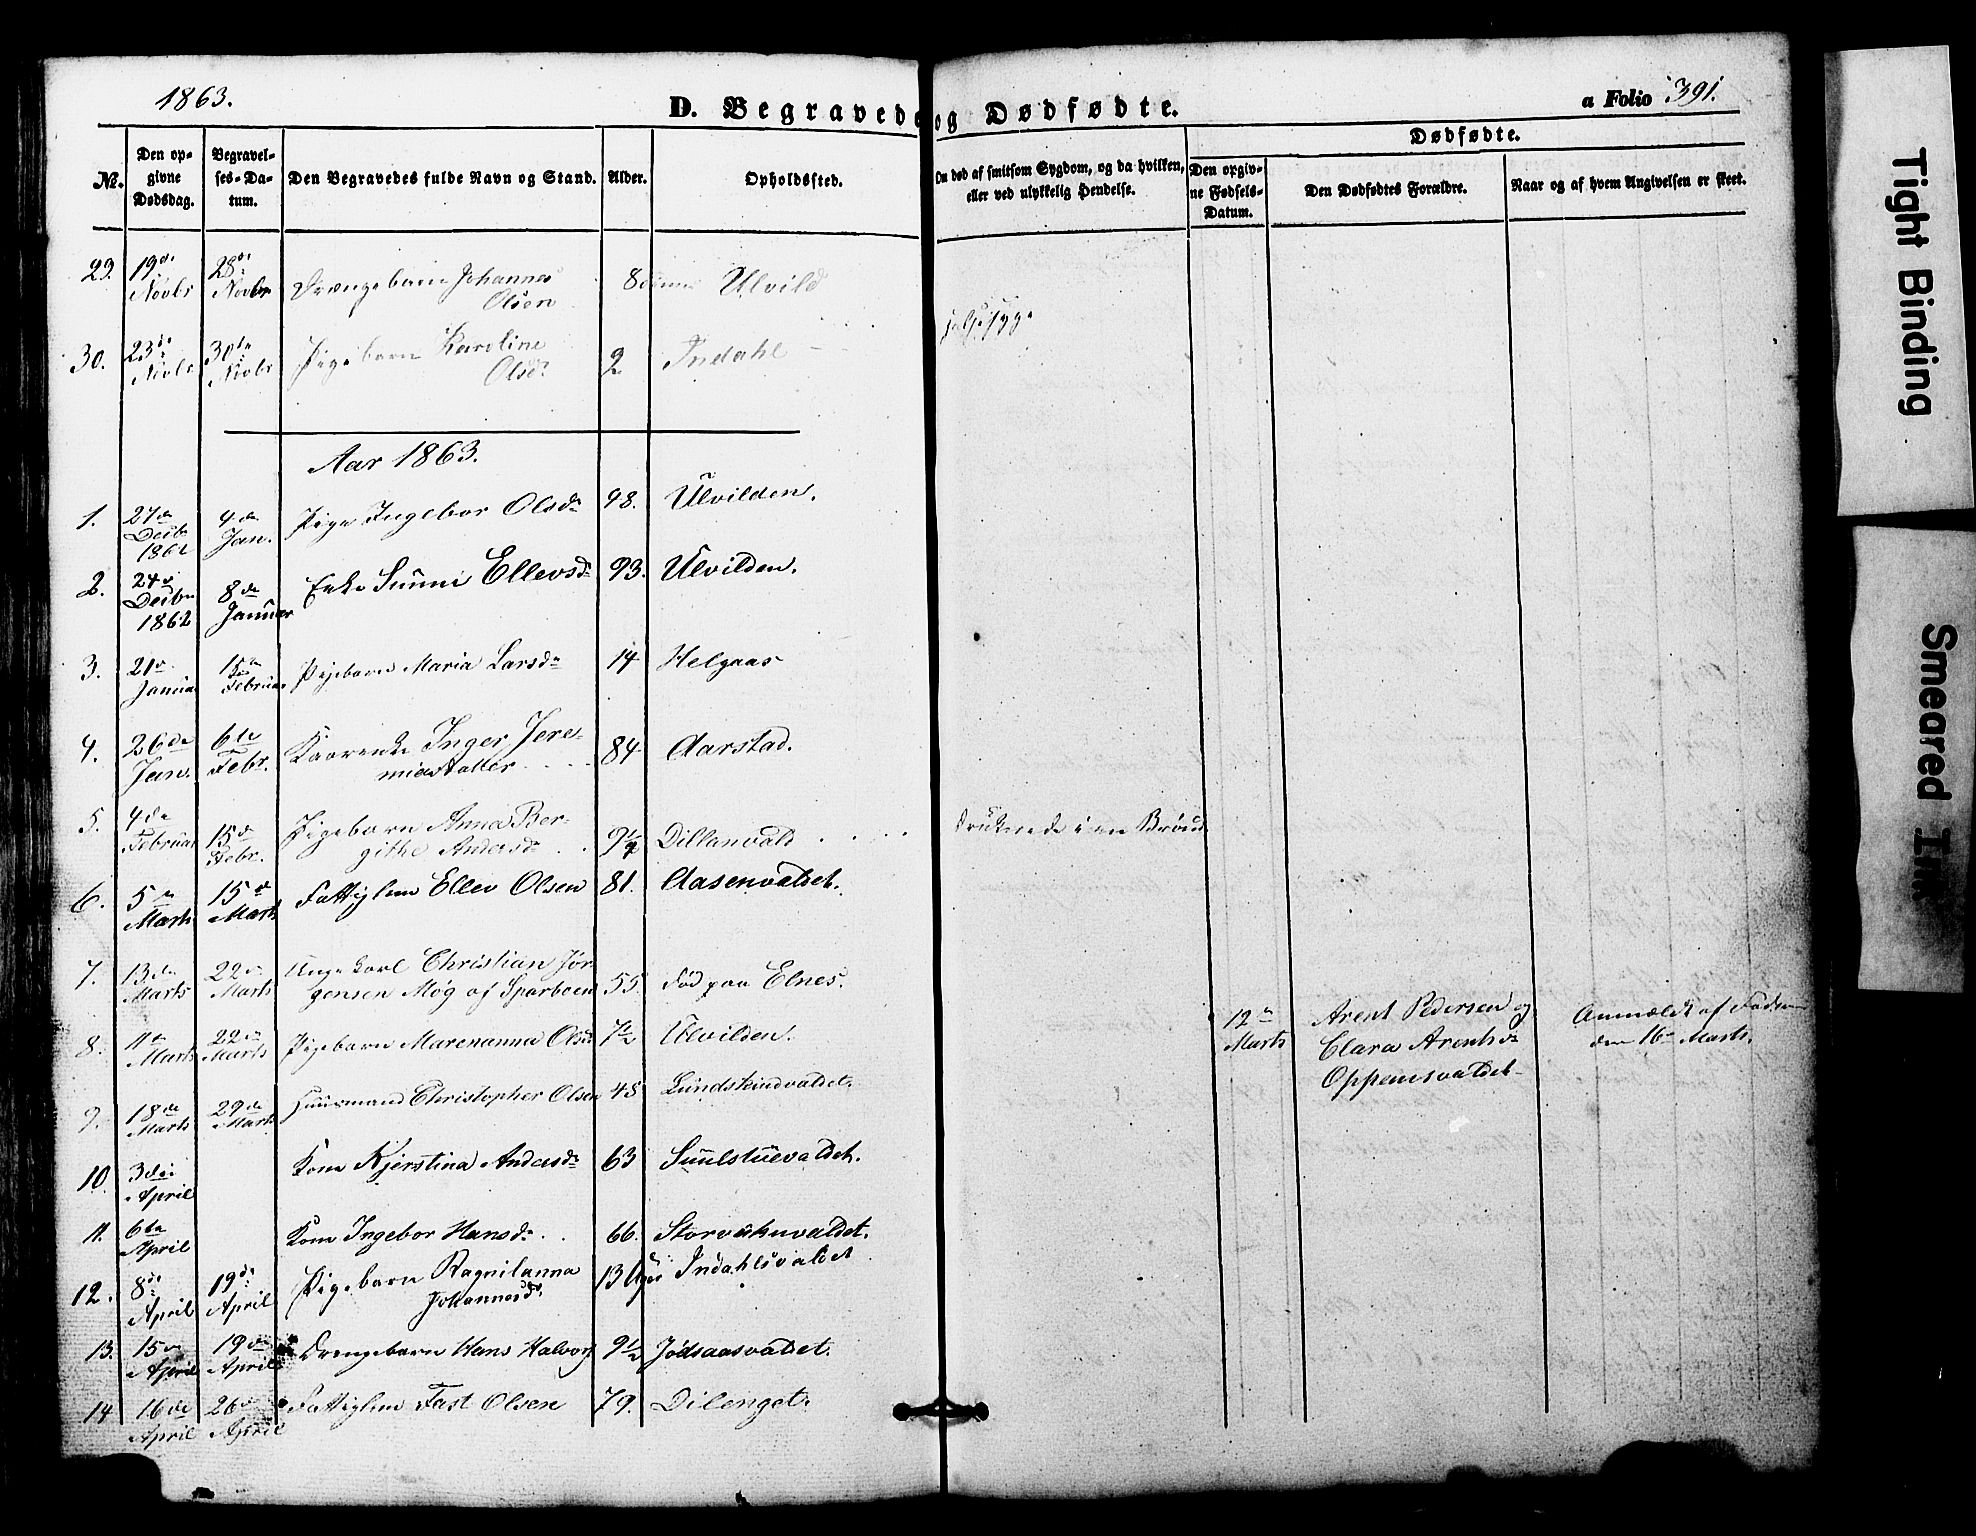 1863.
D. Begravede og Dødfødte.
a Folio 391.
Dødfødte.
№.
Den opgivne Dødsdag.
Begravelses-Datum.
Den Begravedes fulde Navn og Stand.
Alder.
Opholdssted.
Om død af smitsom Sygdom, og da hvilken, eller ved ulykkelig Hendelse.
Den opgivne Fødsels-Datum.
Den Dødfødtes Forældre.
Naar og af hvem Angivelsen er skeet.
29. 19de Novbr 28de Novbr Drengebarn Johannes Olsen 8 Ulvild
30. 23de Novbr 30de Novbr Pigebarn Karoline Olsd. 2 Indahl
Aar 1863.
1. Decbr 1862 4de Jan. Pige Ingebor Olsdr 98. Ulvilden.
2. 24de Decbr 1862 8de Januar Enke Sunni Ellevsdr 93. Ulvilden.
3. 21de Januar 15de Februar Pigebarn Maria Larsdr 14 Helgaas
4. 26de Jan. 6te Febr. Kaarenke Inger Jeremiasdatter 84. Aarstad.
5. 4de Februar 15de Febr. Pigebarn Anna Bergithe Andersdr Dillanvald Druknede i en Brønd
6. 5te Marts 15de Marts Fattiglem Ellev Olsen 81. Aasenvaldet.
7. 13de Marts 22de Marts Ungekarl Christian Jørgensen Møg af Sparboen 55. Født paa Elnes.
8. 11te Marts 22de Marts Pigebarn Marenanna Olsdr 7½ Ulvilden.
9. 18de Marts 29de Marts Huusmand Christopher Olsen 45 Lundskindvaldet.
10. 3die April Kone Kjerstina Andersdr 63 Suulstuevaldet.
11. 6te April Kone Ingebor Hansdr 66. Storvukuvaldet.
12. 8de April 19de April Pigebarn Ragnilanna Johannesdr. 13 Uger Indahlsvaldet
13. 15de April 19de April Drengebarn Hans Halvors 9½ Jødsaasvaldet.
14 16de April 26de April Fattiglem Fast Olsen 79. Dilenget.
12te Marts
Arent Pedersen og
Clara Arentsdr
Anmældt af Faderen
den 16de Marts.
Tight Binding
Smeared Ink